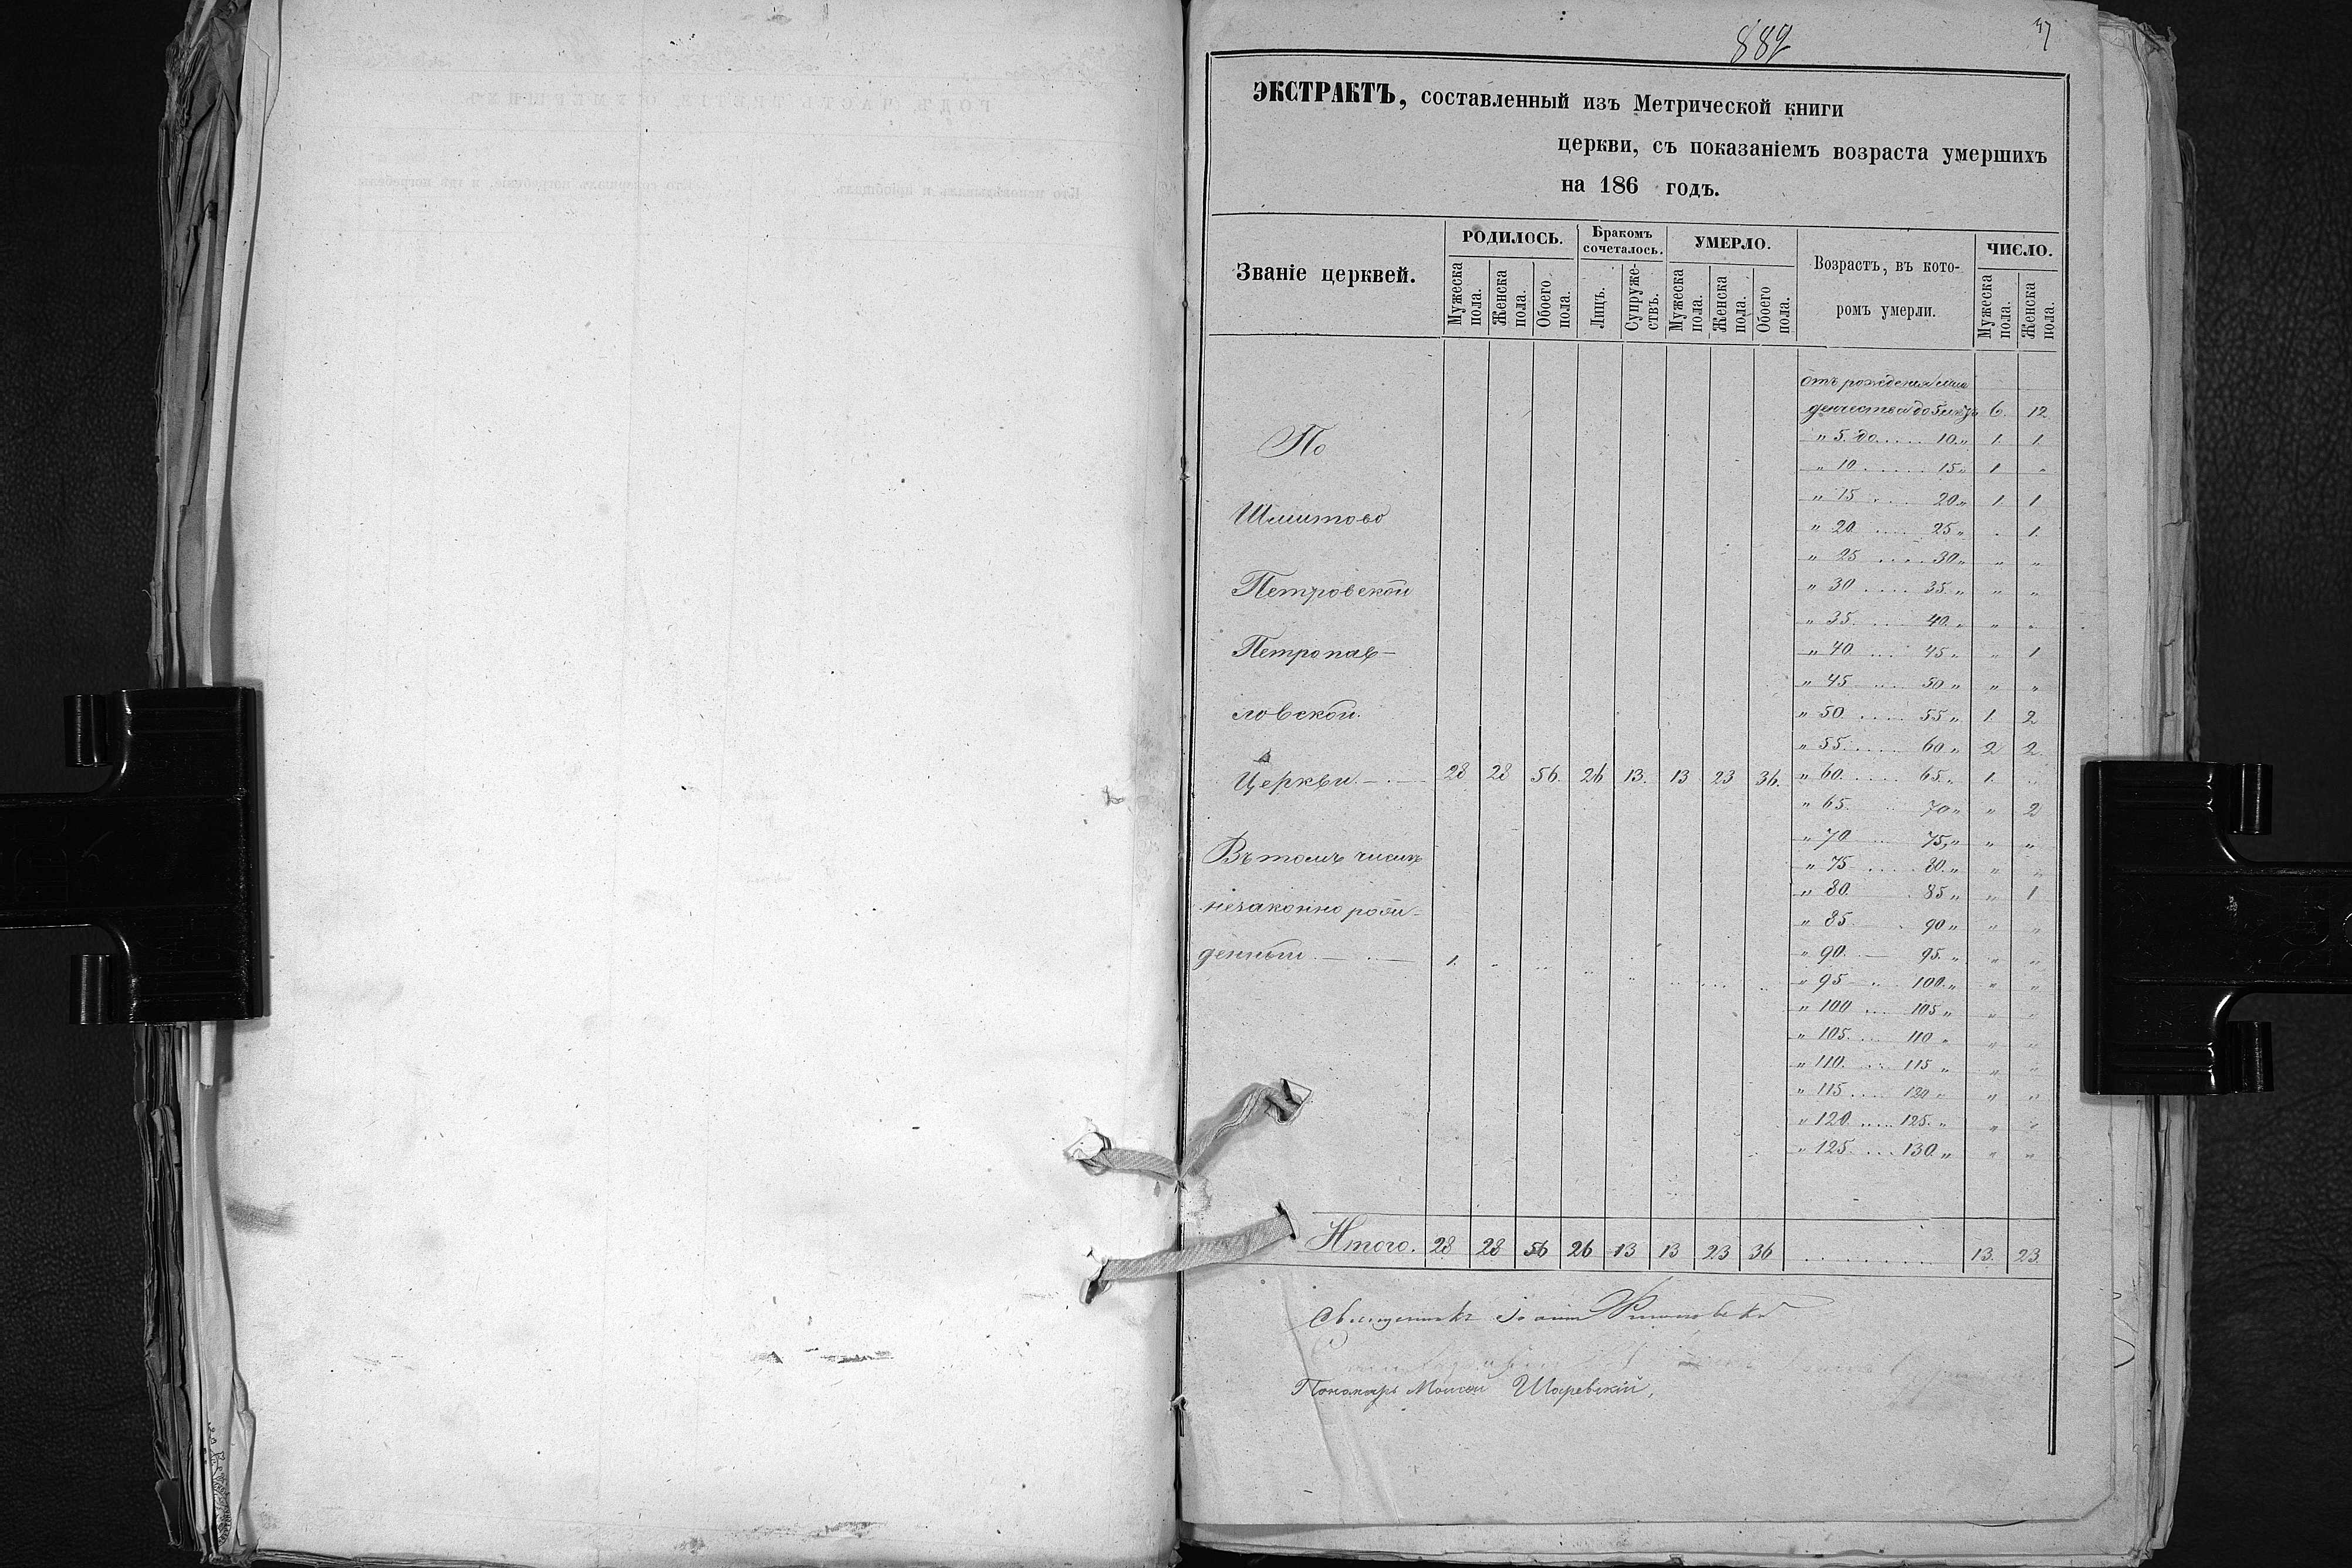 889
47
ЭКСТРАКТЪ, составленный изъ Метрической книги
церкви, съ показаніемъ возраста умершихъ
на 186 годъ.
Званіе церквей.
РОДИЛОСЬ.
Бракомъ сочеталось.
УМЕРЛО.
Возрастъ, въ кото-
ромъ умерли.
ЧИСЛО.
Мужеска пола.
Женска пола.
Обоего пола.
Лицъ.
Супруже-ствъ.
Мужеска пола.
Женска пола.
Обоего пола.
Мужеска пола.
Женска пола.
отъ рожденія мла
денчества до 5 6. 12
" 5. до..... 10. " 1. 1.
" 10 ...... 15 " 1 "
" 15 .... 20 " 1. 1
" 20 .... 25 " . 1.
" 25 .... 30 " " "
" 30 .... 35. " " "
" 35. .... 40. " " "
" 40. .... 45 " " 1
" 45 .... 50 " " "
" 50. .... 55 " 1. 2
" 55. .... 60 " 2 2.
" 60 .... 65. " 1. "
" 65. .... 70 " " 2
" 70 .... 75, " " "
" 75 .... 80. " " "
" 80. .... 85 " " 1
" 85. .... 90 " " "
" 90. — 95. " " "
" 95 .... 100. " " "
" 100 .... 105 " " "
" 105. .... 110 " " "
" 110. .... 115 " " "
" 115 .... 120 " " "
" 120. .... 125. " " "
" 125. .... 130. " " "
По
Шмитово
Петровской
Петропав-
ловской
Церкви. — 28 28 56. 26 13. 13 23 36.
Въ томъ числѣ
незаконно рож-
денный — 1.
Итого. 28 28 56 26 13 13 23 36 ......... 13. 23.
Священникъ Іоаннъ
Пономарь Моисей Шаревскій.